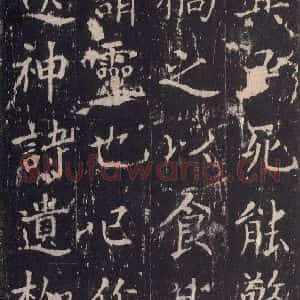 其民死能驚
禍之以食其
謂靈也已作
送神詩遺柳
Shufawang.CN